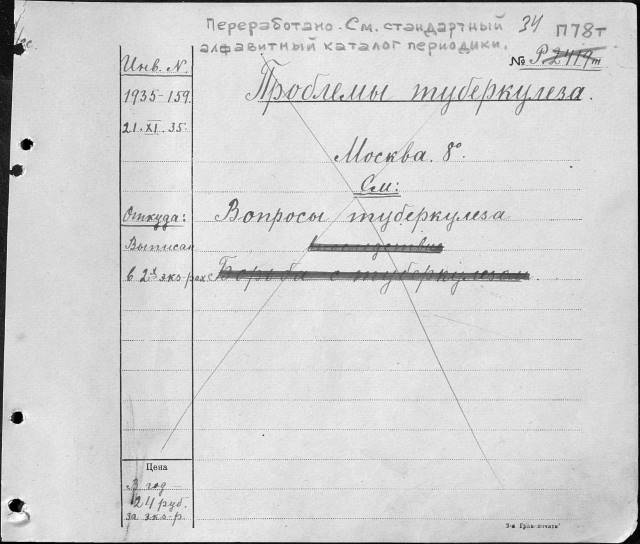 Переработано. См. стандартный
алфавитный каталог периодики.
34 П78т
№ Р 2419т
Инв. N.
1935-159.
21.XI.35.
Проблемы туберкулеза.
Москва. 8°.
См:
Откуда:
Вопросы туберкулеза
Выписан
впоследствии
в 2х экз-рах
Борьба с туберкулезом
Цена
год
24 руб.
за экз-р.